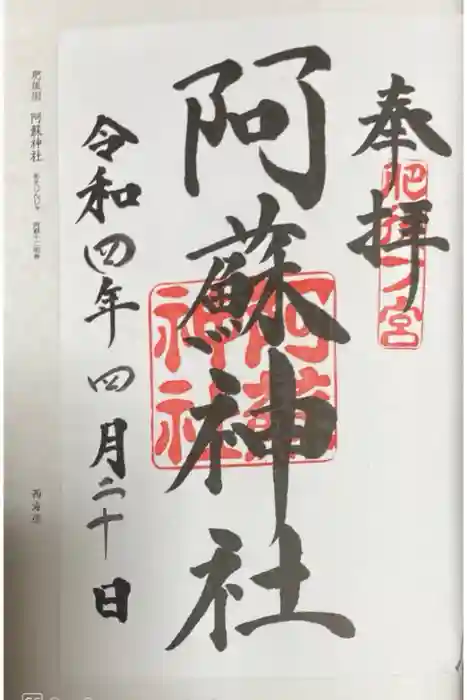 奉拝
肥後一宮
阿蘇神社
阿蘇神社
令和四年四月二十日
肥後国 阿蘇神社
西海道